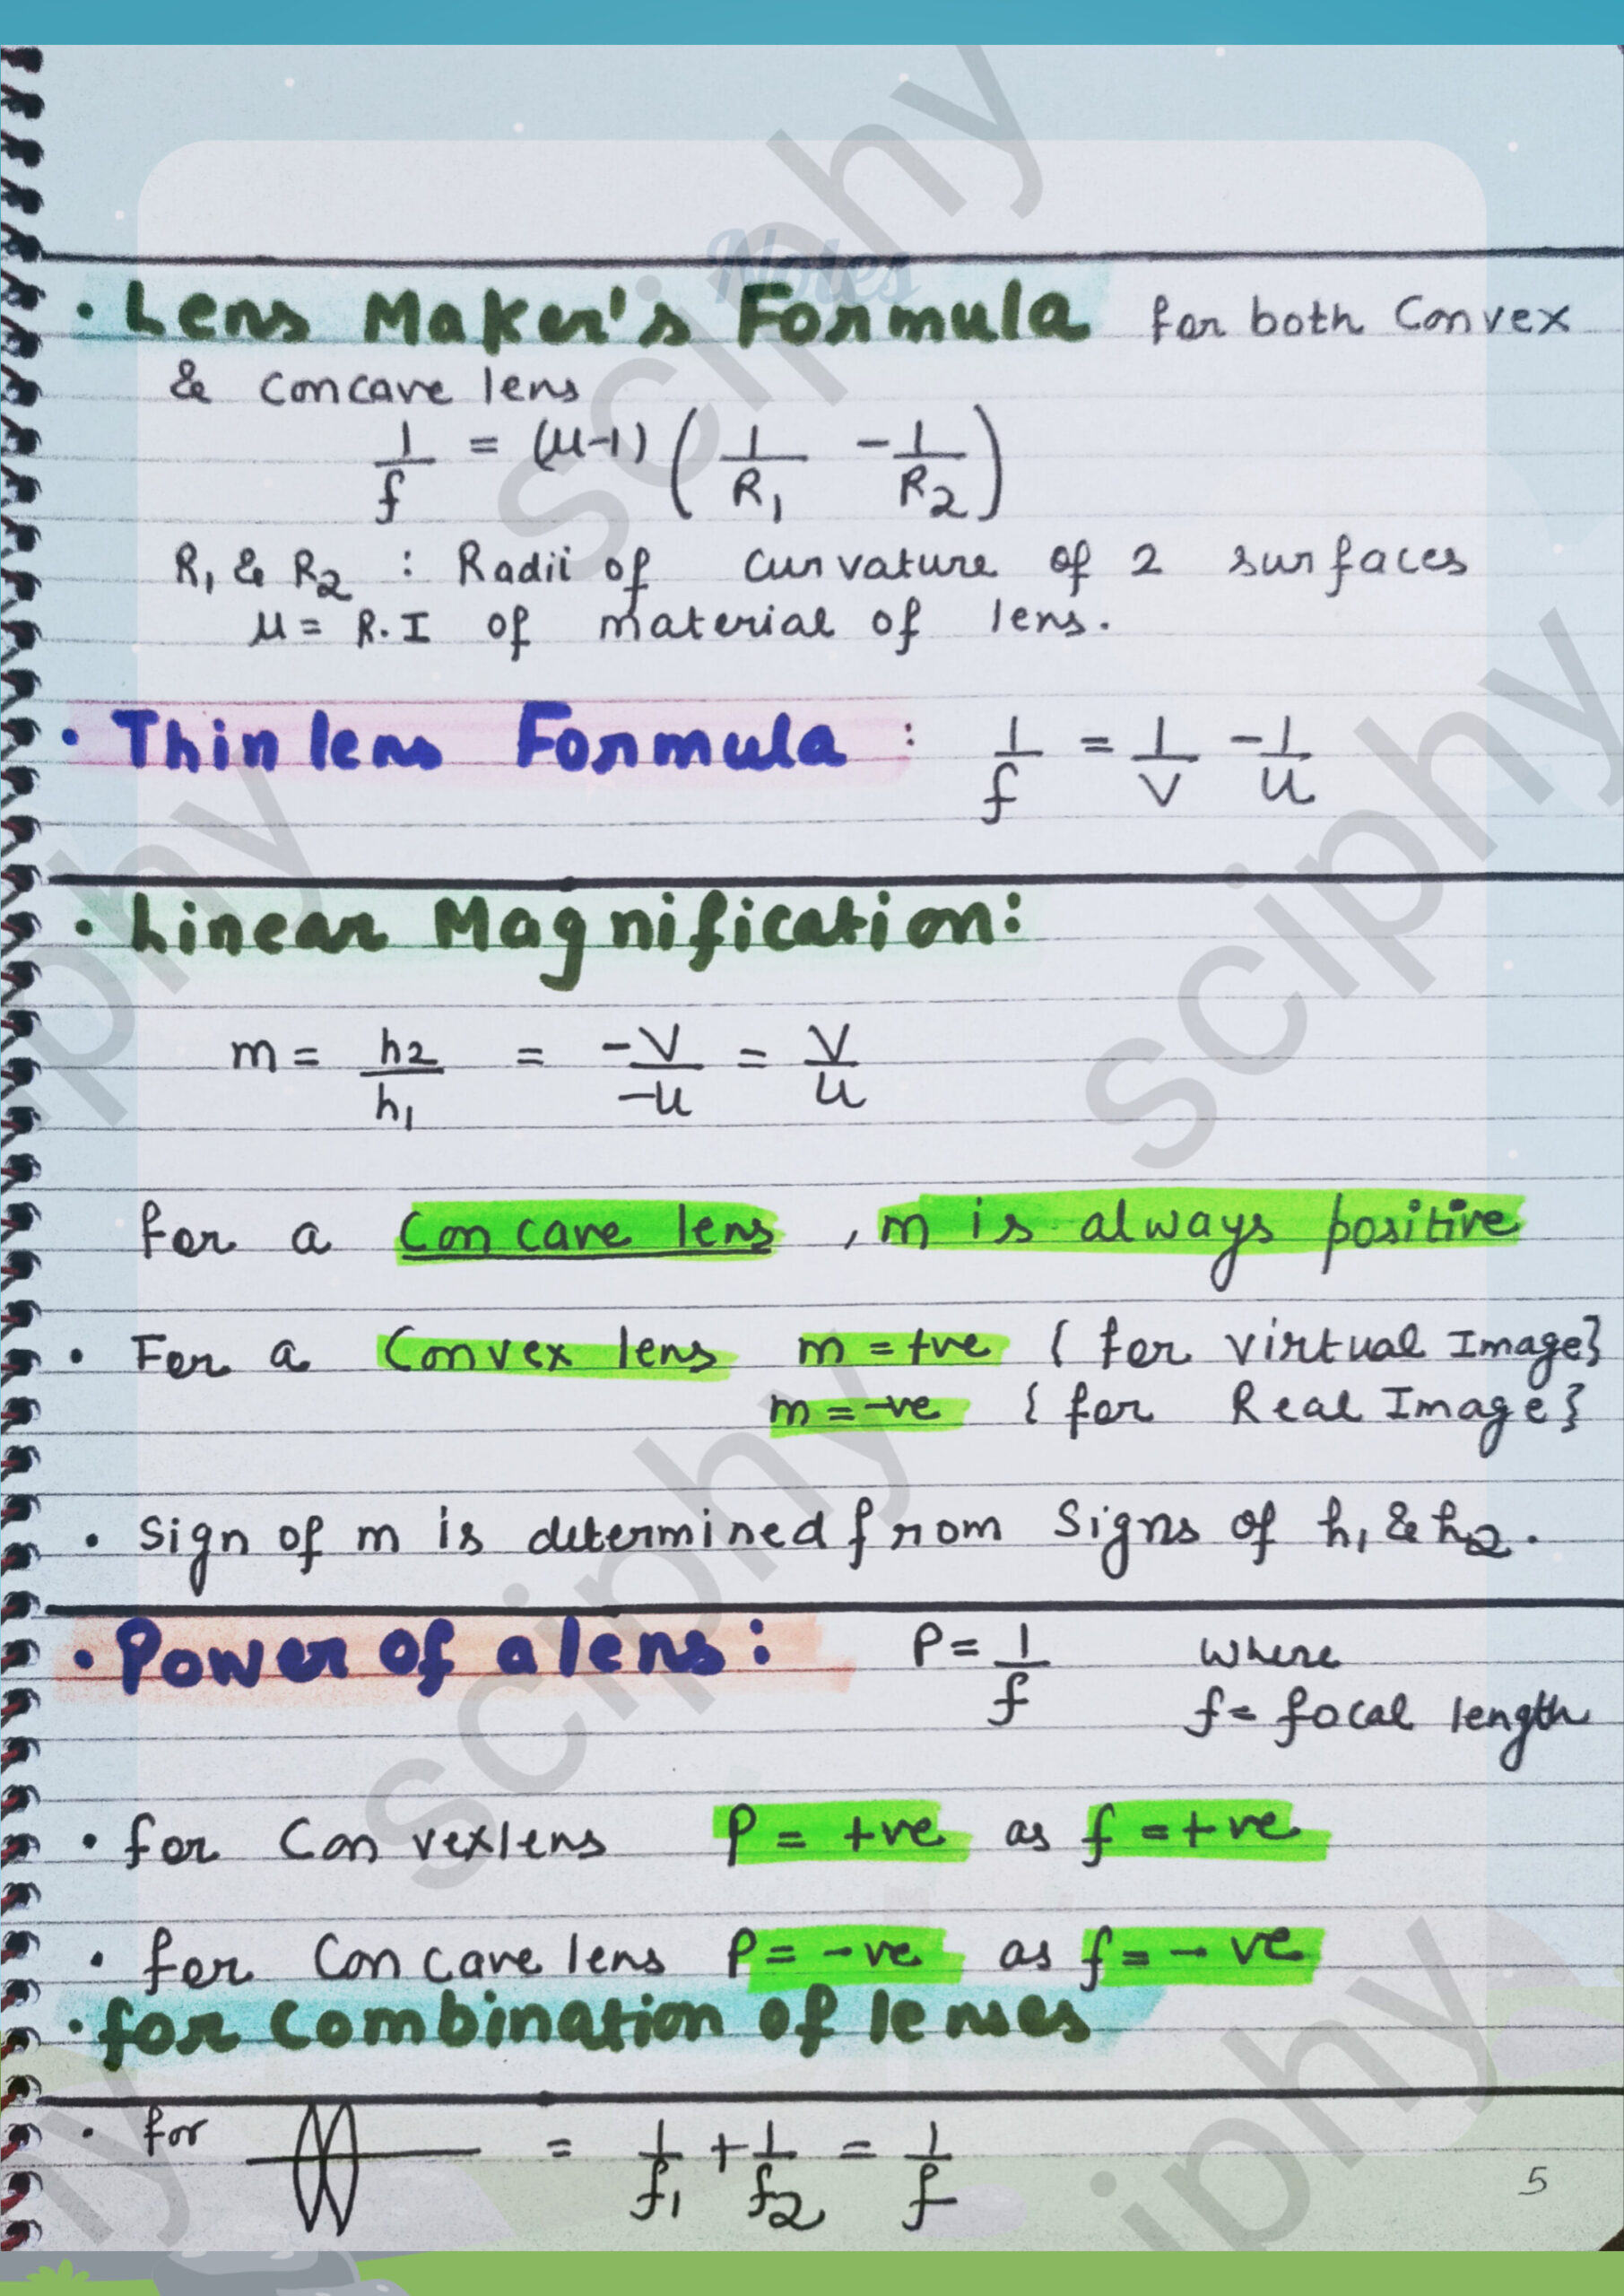 Notes
• Lens Maker's Formula for both Convex
& Concave lens
1/f = (μ-1) (1/R₁ - 1/R₂)
R₁ & R₂ : Radii of curvature of 2 surfaces
μ = R.I of material of lens.
• Thin lens Formula : 1/f = 1/v - 1/u
• Linear Magnification:
m = h₂/h₁ = -v/-u = v/u
for a Concave lens , m is always positive
• For a Convex lens m = +ve { for virtual Image}
m = -ve { for Real Image}
• Sign of m is determined from Signs of h₁ & h₂.
• Power of a lens: P = 1/f where
f = focal length
• for Convex lens P = +ve as f = +ve
• for Concave lens P = -ve as f = -ve
• for combination of lenses
• for = 1/f₁ + 1/f₂ = 1/f
5
sciphy